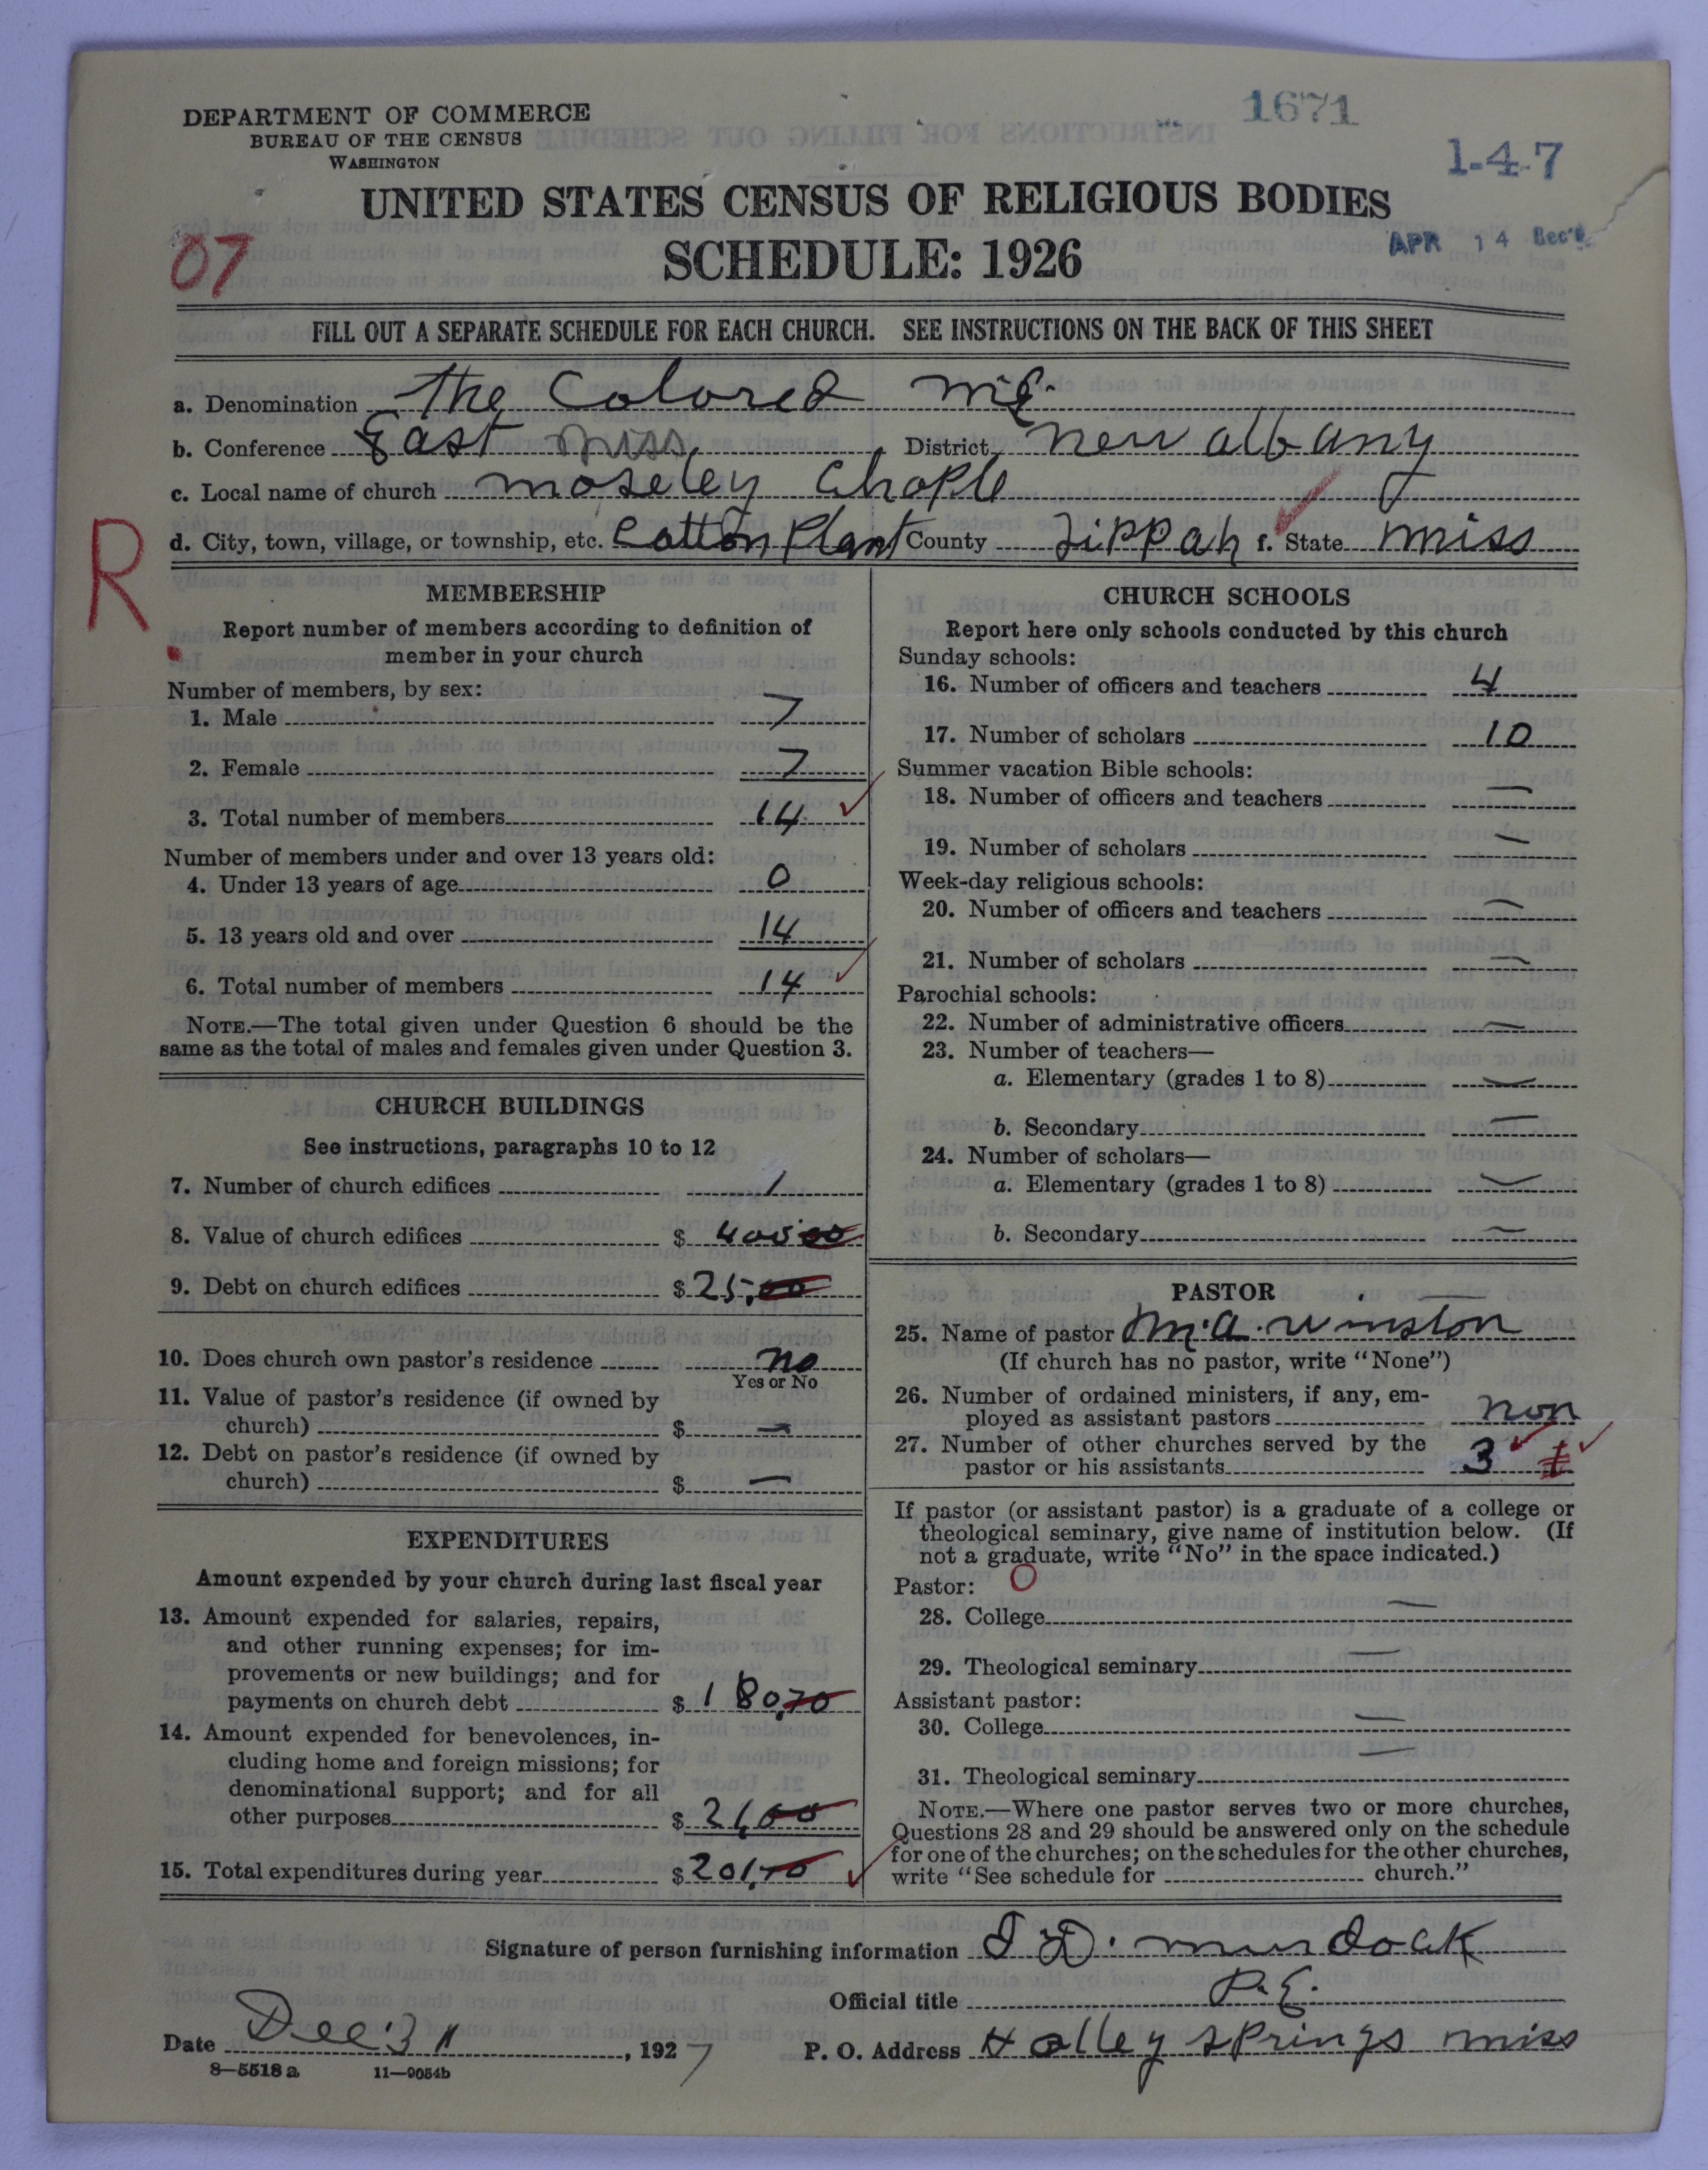 DEPARTMENT OF COMMERCE
BUREAU OF THE CENSUS
WASHINGTON
1671
1-4-7
UNITED STATES CENSUS OF RELIGIOUS BODIES
SCHEDULE: 1926
APR 14 Rec'd
07
FILL OUT A SEPARATE SCHEDULE FOR EACH CHURCH. SEE INSTRUCTIONS ON THE BACK OF THIS SHEET
a. Denomination The Colored M.E.
b. Conference East Miss District New Albany
c. Local name of church Moseley Chaple
d. City, town, village, or township, etc. Cotton Plant County Tippah f. State Miss
R
MEMBERSHIP
Report number of members according to definition of
member in your church
Number of members, by sex:
1. Male 7
2. Female 7
3. Total number of members 14
Number of members under and over 13 years old:
4. Under 13 years of age 0
5. 13 years old and over 14
6. Total number of members 14
NOTE.—The total given under Question 6 should be the
same as the total of males and females given under Question 3.
CHURCH BUILDINGS
See instructions, paragraphs 10 to 12
7. Number of church edifices 1
8. Value of church edifices $ 400 00
9. Debt on church edifices $ 25,00
10. Does church own pastor's residence no
Yes or No
11. Value of pastor's residence (if owned by
church) $ —
12. Debt on pastor's residence (if owned by
church) $ —
EXPENDITURES
Amount expended by your church during last fiscal year
13. Amount expended for salaries, repairs,
and other running expenses; for im-
provements or new buildings; and for
payments on church debt $ 180,70
14. Amount expended for benevolences, in-
cluding home and foreign missions; for
denominational support; and for all
other purposes $ 21,00
15. Total expenditures during year $ 201,70
CHURCH SCHOOLS
Report here only schools conducted by this church
Sunday schools:
16. Number of officers and teachers 4
17. Number of scholars 10
Summer vacation Bible schools:
18. Number of officers and teachers —
19. Number of scholars —
Week-day religious schools:
20. Number of officers and teachers —
21. Number of scholars —
Parochial schools:
22. Number of administrative officers —
23. Number of teachers—
a. Elementary (grades 1 to 8) —
b. Secondary —
24. Number of scholars—
a. Elementary (grades 1 to 8) —
b. Secondary —
PASTOR
25. Name of pastor M.A. Winston
(If church has no pastor, write "None")
26. Number of ordained ministers, if any, em-
ployed as assistant pastors non
27. Number of other churches served by the
pastor or his assistants 3
If pastor (or assistant pastor) is a graduate of a college or
theological seminary, give name of institution below. (If
not a graduate, write "No" in the space indicated.)
Pastor: O
28. College —
29. Theological seminary —
Assistant pastor:
30. College —
31. Theological seminary —
NOTE.—Where one pastor serves two or more churches,
Questions 28 and 29 should be answered only on the schedule
for one of the churches; on the schedules for the other churches,
write "See schedule for church."
Signature of person furnishing information Murdoak
Official title P.E.
Date Dec 31, 1927 P. O. Address Holley Springs Miss
8—5518 a 11—9054b